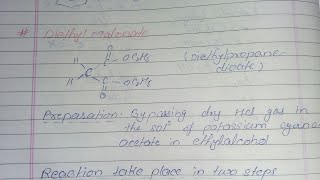 # Diethyl malonate
O
H C OC2H5
C
H C OC2H5
O
(Diethylpropane
dioate)
Preparation: Bypassing dry Hcl gas in
the solⁿ of potassium cyano
acetate in ethylalcohol
Reaction take place in two steps